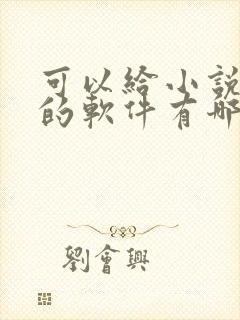 可以給小說
的軟件有哪
劉會興